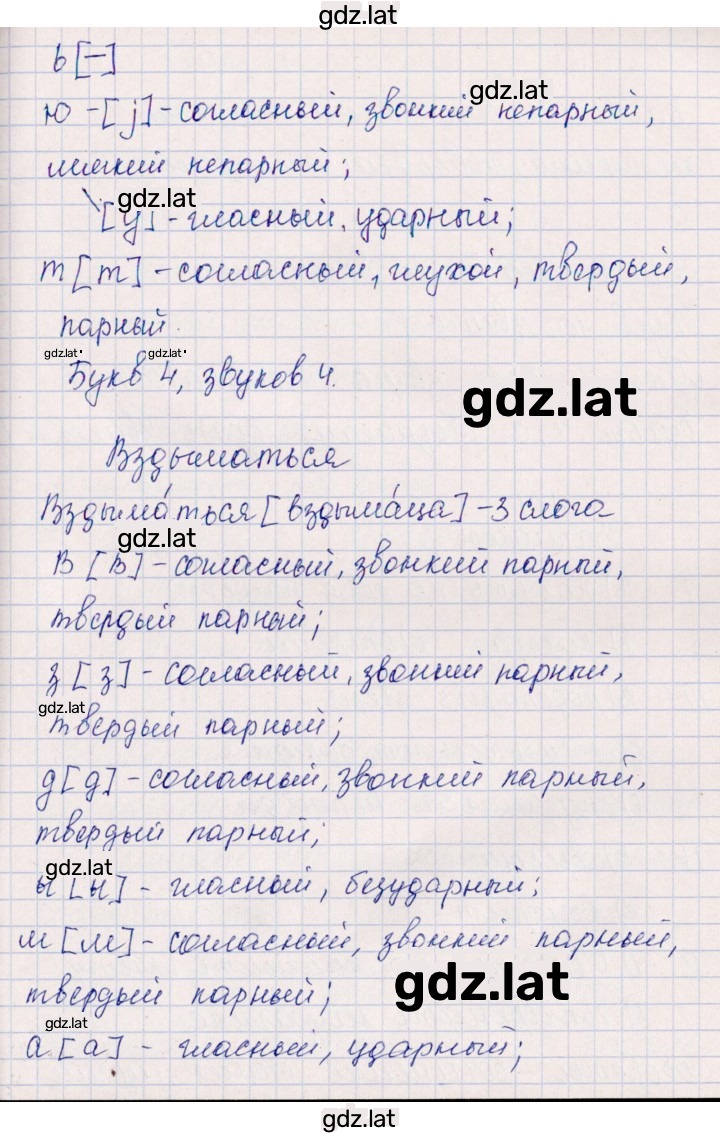 gdz.lat
ь [–]
gdz.lat
ю – [j] – согласный, звонкий непарный,
мягкий непарный;
gdz.lat
[у] – гласный, ударный;
т [т] – согласный, глухой, твердый,
парный.
gdz.lat gdz.lat
Букв 4, звуков 4.
gdz.lat
Вздыматься
Вздыма́ться [вздыма́ца] – 3 слога
gdz.lat
В [в] – согласный, звонкий парный,
твердый парный;
з [з] – согласный, звонкий парный,
gdz.lat
твердый парный;
д [д] – согласный, звонкий парный,
твердый парный;
gdz.lat
ы [ы] – гласный, безударный;
м [м] – согласный, звонкий парный,
твердый парный;
gdz.lat
gdz.lat
а [а] – гласный, ударный;
gdz.lat